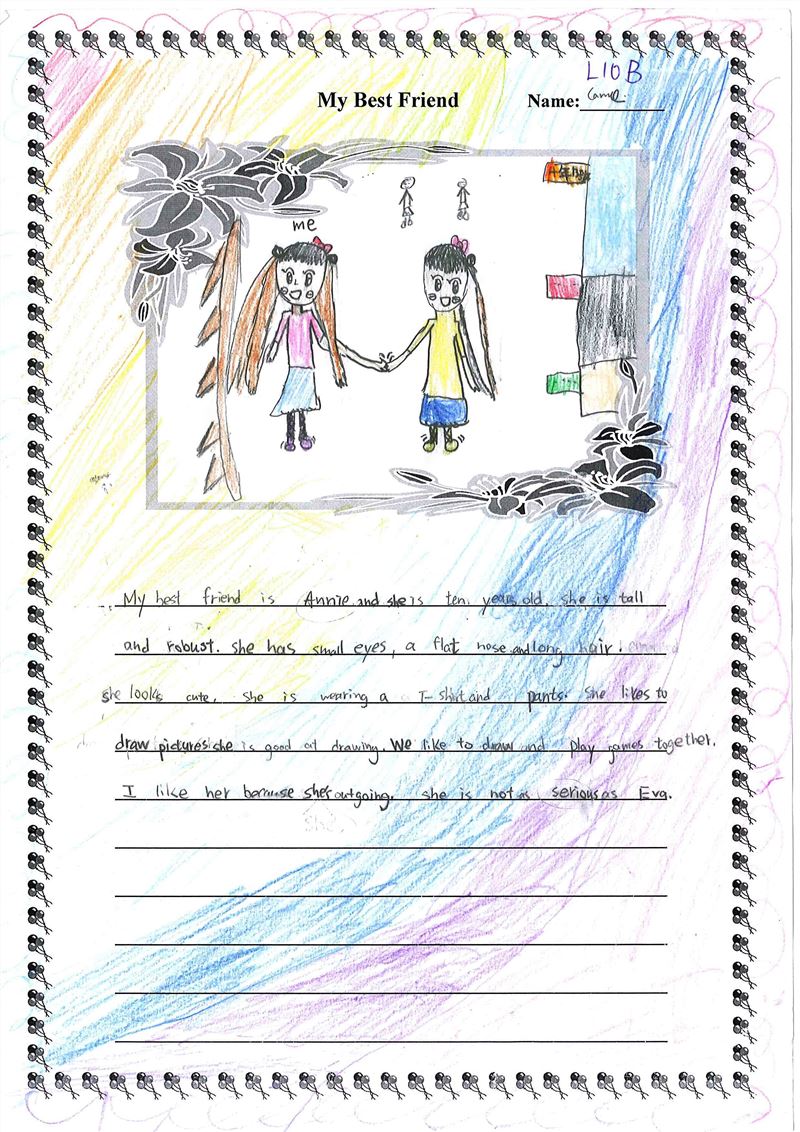 L10B
My Best Friend Name:
me
My best friend is Annie and she is ten years old. she is tall
and robust. she has small eyes, a flat nose and long hair.
she looks cute. she is wearing a T-shirt and pants. She likes to
draw pictures she is good at drawing. We like to draw and play games together.
I like her because she's outgoing. she is not as serious as Eva.